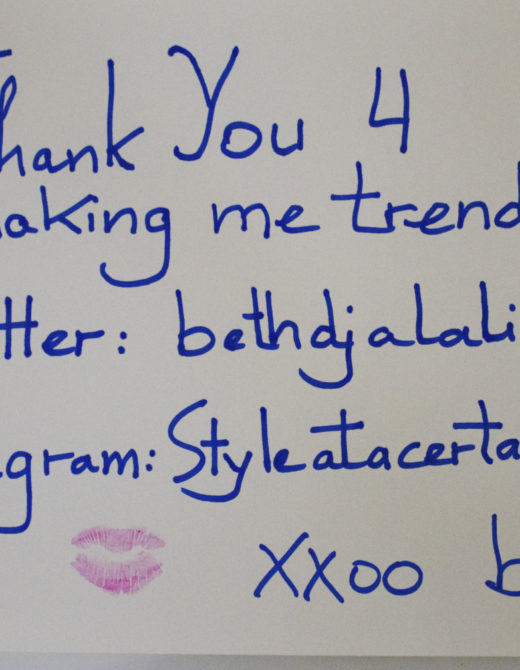 Thank You 4
making me trend
tter: bethdjalali
gram: Styleatacerta
xxoo b